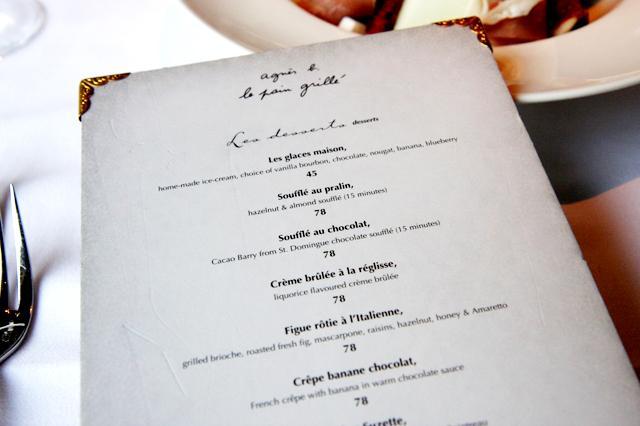 agnès b.
le pain grillé
Les desserts desserts
Les glaces maison,
home-made ice-cream, choice of vanilla bourbon, chocolate, nougat, banana, blueberry
45
Soufflé au pralin,
hazelnut & almond soufflé (15 minutes)
78
Soufflé au chocolat,
Cacao Barry from St. Domingue chocolate soufflé (15 minutes)
78
Crème brûlée à la réglisse,
liquorice flavoured crème brûlée
78
Figue rôtie à l'Italienne,
grilled brioche, roasted fresh fig, mascarpone, raisins, hazelnut, honey & Amaretto
78
Crêpe banane chocolat,
French crêpe with banana in warm chocolate sauce
78